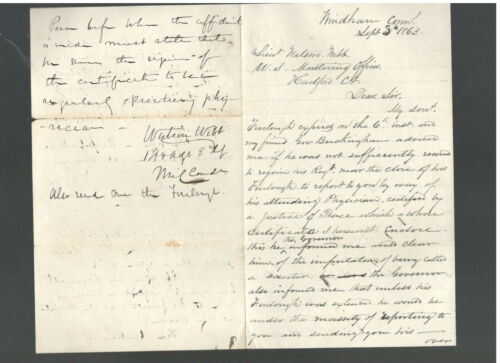 Peace before whom the affidavit
is made must state that
he knows the signer of
the certificate to be a
regularly practicing phy-
-sician —
Watson Webb
1st Lt
Also send me the Furlough
Windham Conn.
Sept 3d 1863
Lieut Watson Webb
U.S. Mustering Officer
Hartford Ct.
Dear Sir.
My son's
Furlough expires on the 6th inst and
my friend Gov Buckingham advised
me if he was not sufficiently recovered
to rejoin his Regt. near the close of his
Furlough to report to you by way of
his attending Physician, certified by
a Justice of Peace which
Certificate I herewith Enclose
this he the Governor informed me would clear
him of the imputation of being called
a deserter the Governor
also informed me that unless his
Furlough was extended he would be
under the necessity of reporting to
you and sending you his —
over